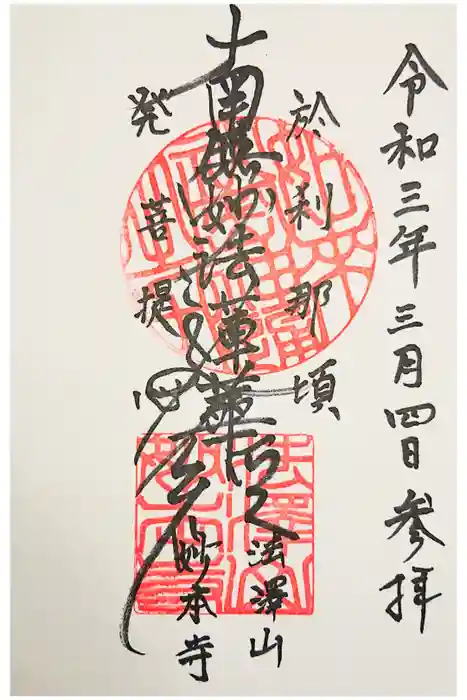 令和三年三月四日参拝
於刹那頃
南無妙法蓮華経
発菩提心
法澤山
妙本寺